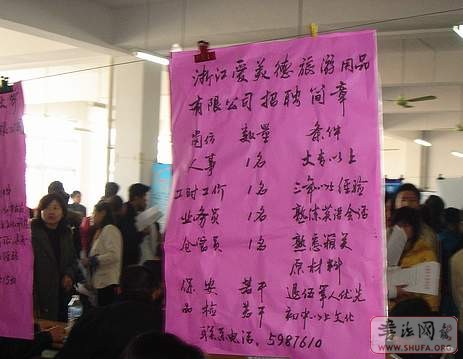 浙江爱美德旅游用品
有限公司招聘简章
岗位 数量 条件
人事 1名 大专以上
工时工价 1名 三年以上经验
业务员 1名 熟练英语会话
仓管员 1名 熟悉相关
原材料
保安 若干 退伍军人优先
品检 若干 初中以上文化
联系电话: 5987610
书法网
WWW.SHUFA.ORG